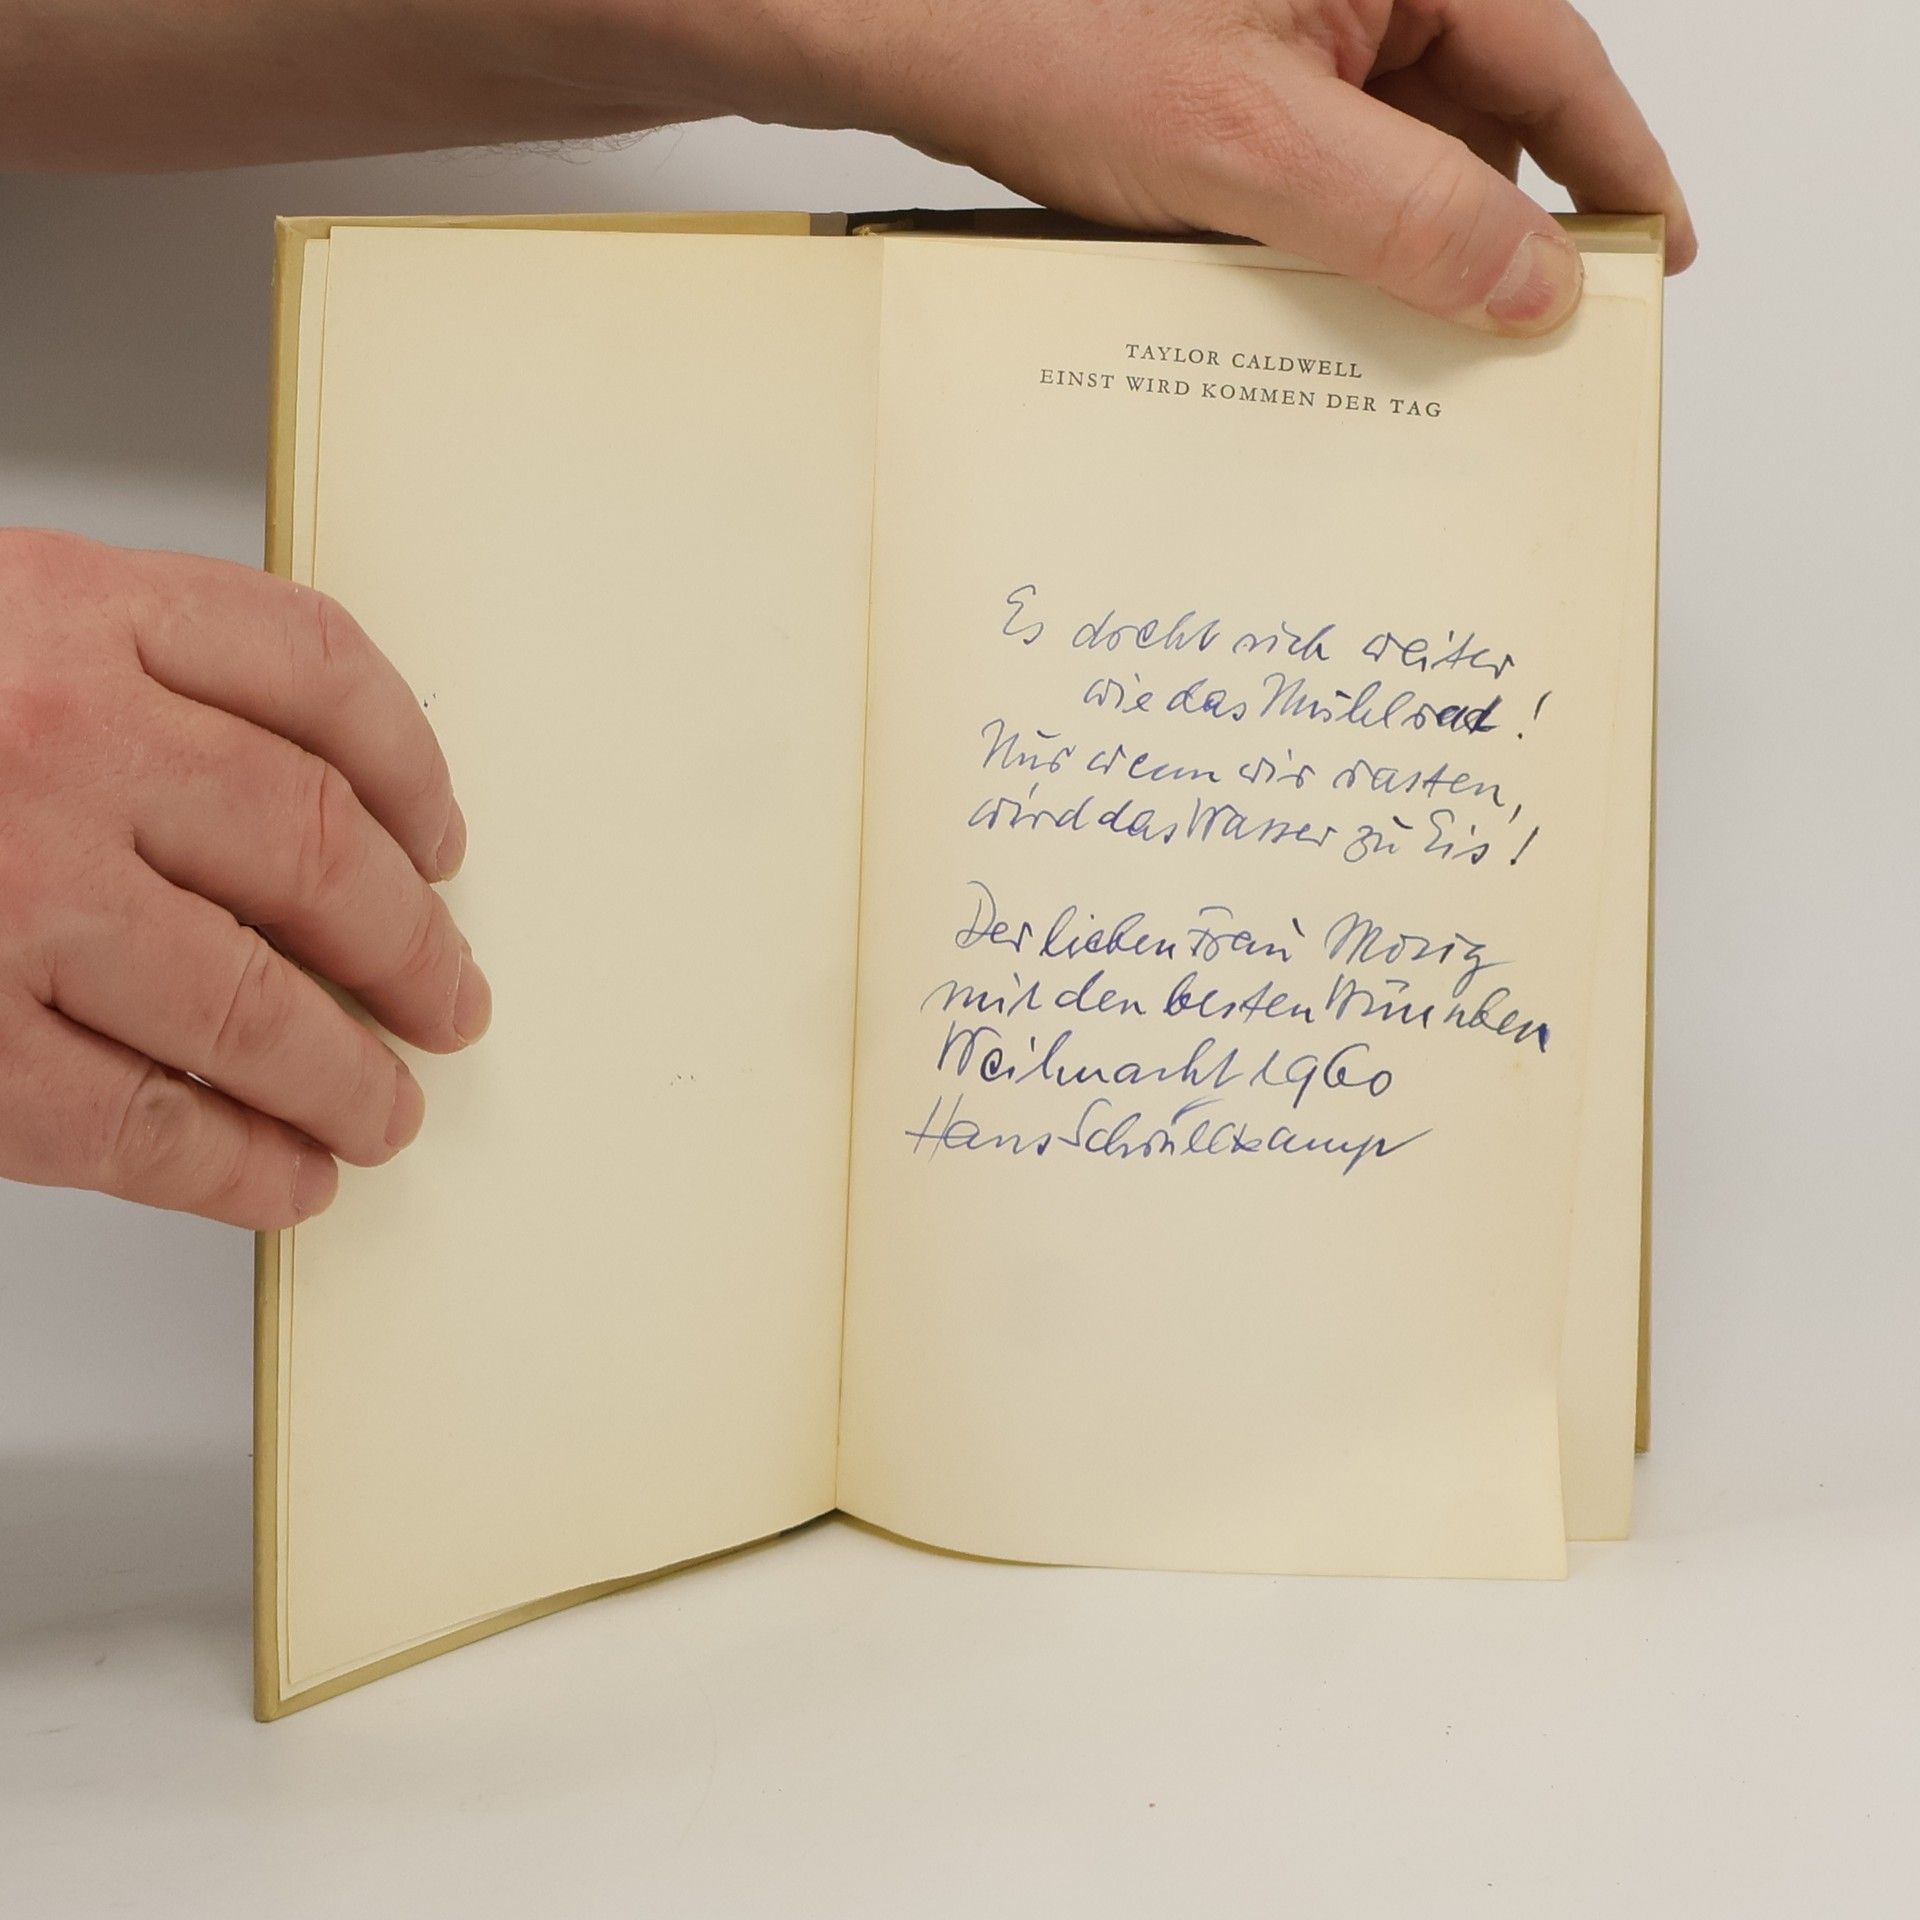 TAYLOR CALDWELL
EINST WIRD KOMMEN DER TAG
Es dreht sich weiter
wie das Mühlrad!
Nur wenn wir rasten,
wird das Wasser zu Eis!
Der lieben Frau
mit den besten Wünschen
Weihnacht 1960
Hans